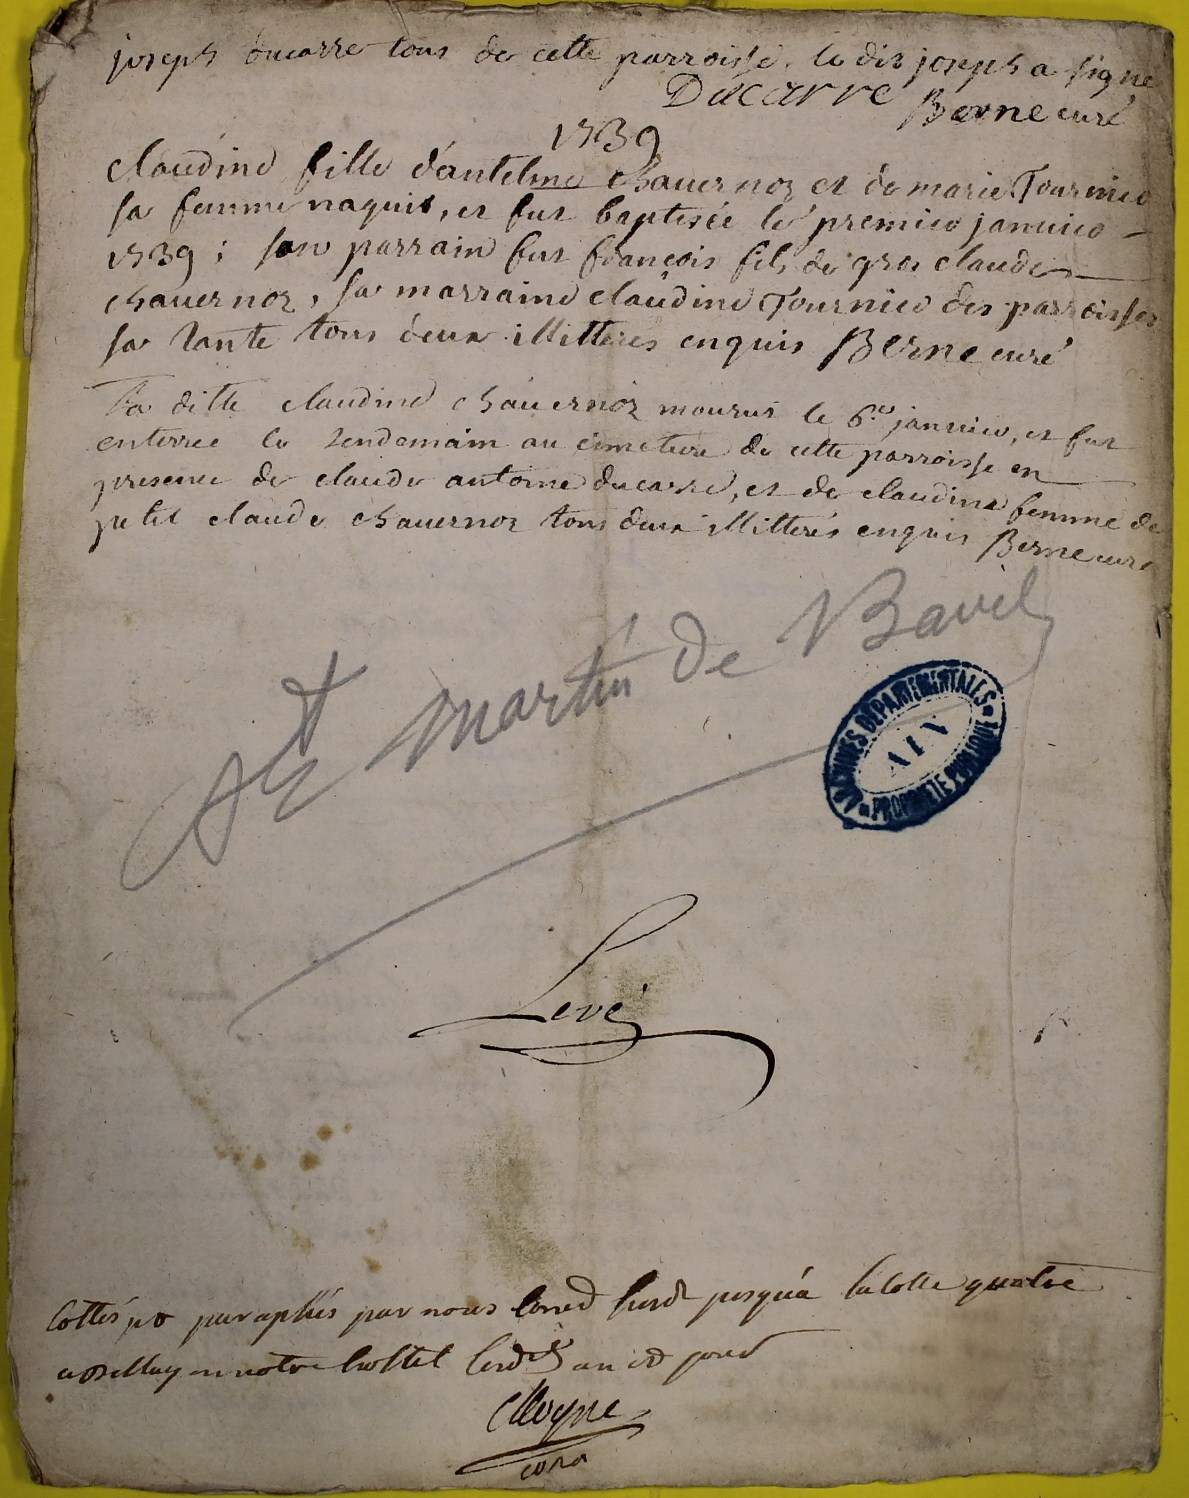 joseph ducarre tous de cette parroisse. le dit joseph a signe
Ducarre Berne curé
1739
claudine fille d'antelme chauernoz et de marie Tournier
sa femme naquit, et fut baptisée le premier janvier
1739 ; son parrain fut françois fils de gros claude
chauernoz, sa marraine claudine Tournier des parroisses
sa tante tous deux illitteres enquis Berne curé
La ditte claudine chauernoz mourut le 6.e janvier, et fut
enterree le lendemain au cimetiere de cette parroisse en
presence de claude antoine ducarre, et de claudine femme de
petit claude chauernoz tous deux illitterés enquis Berne curé
St martin de Bavel
ARCHIVES DÉPARTEMENTALES
AIN
PROPRIÉTÉ PUBLIQUE
Levé
Cottés paraphés par nous jusqu'à la cotte quatre
en notre hostel an et jour